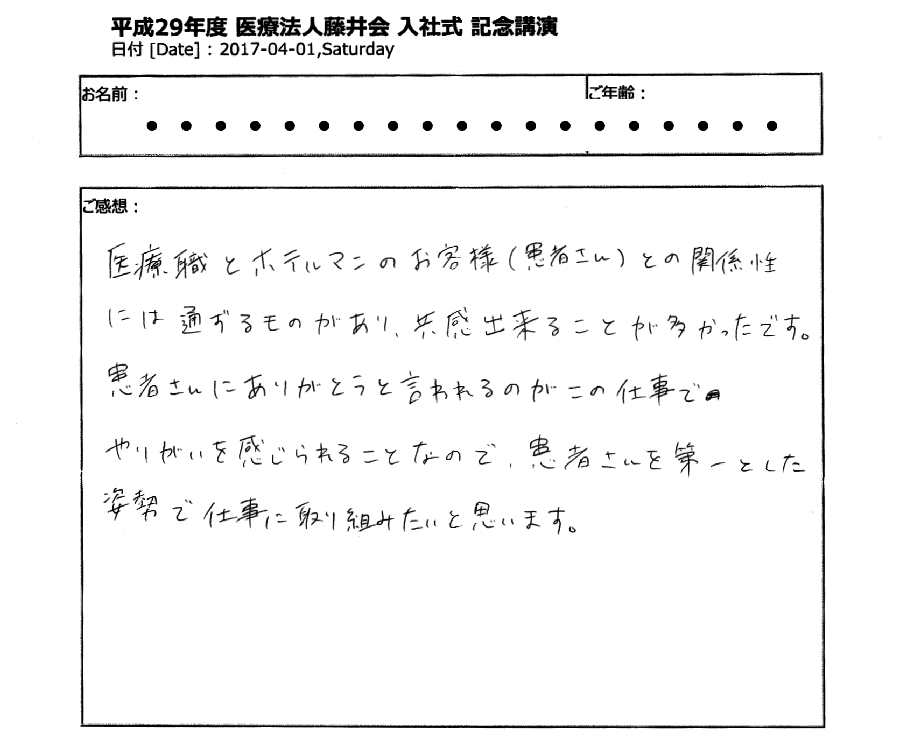 平成29年度 医療法人藤井会 入社式 記念講演
日付 [Date] : 2017-04-01,Saturday
お名前：
ご年齢：
ご感想：
医療職とホテルマンのお客様(患者さん)との関係性
には通ずるものがあり、共感出来ることが多かったです。
患者さんにありがとうと言われるのがこの仕事で
やりがいを感じられることなので、患者さんを第一とした
姿勢で仕事に取り組みたいと思います。